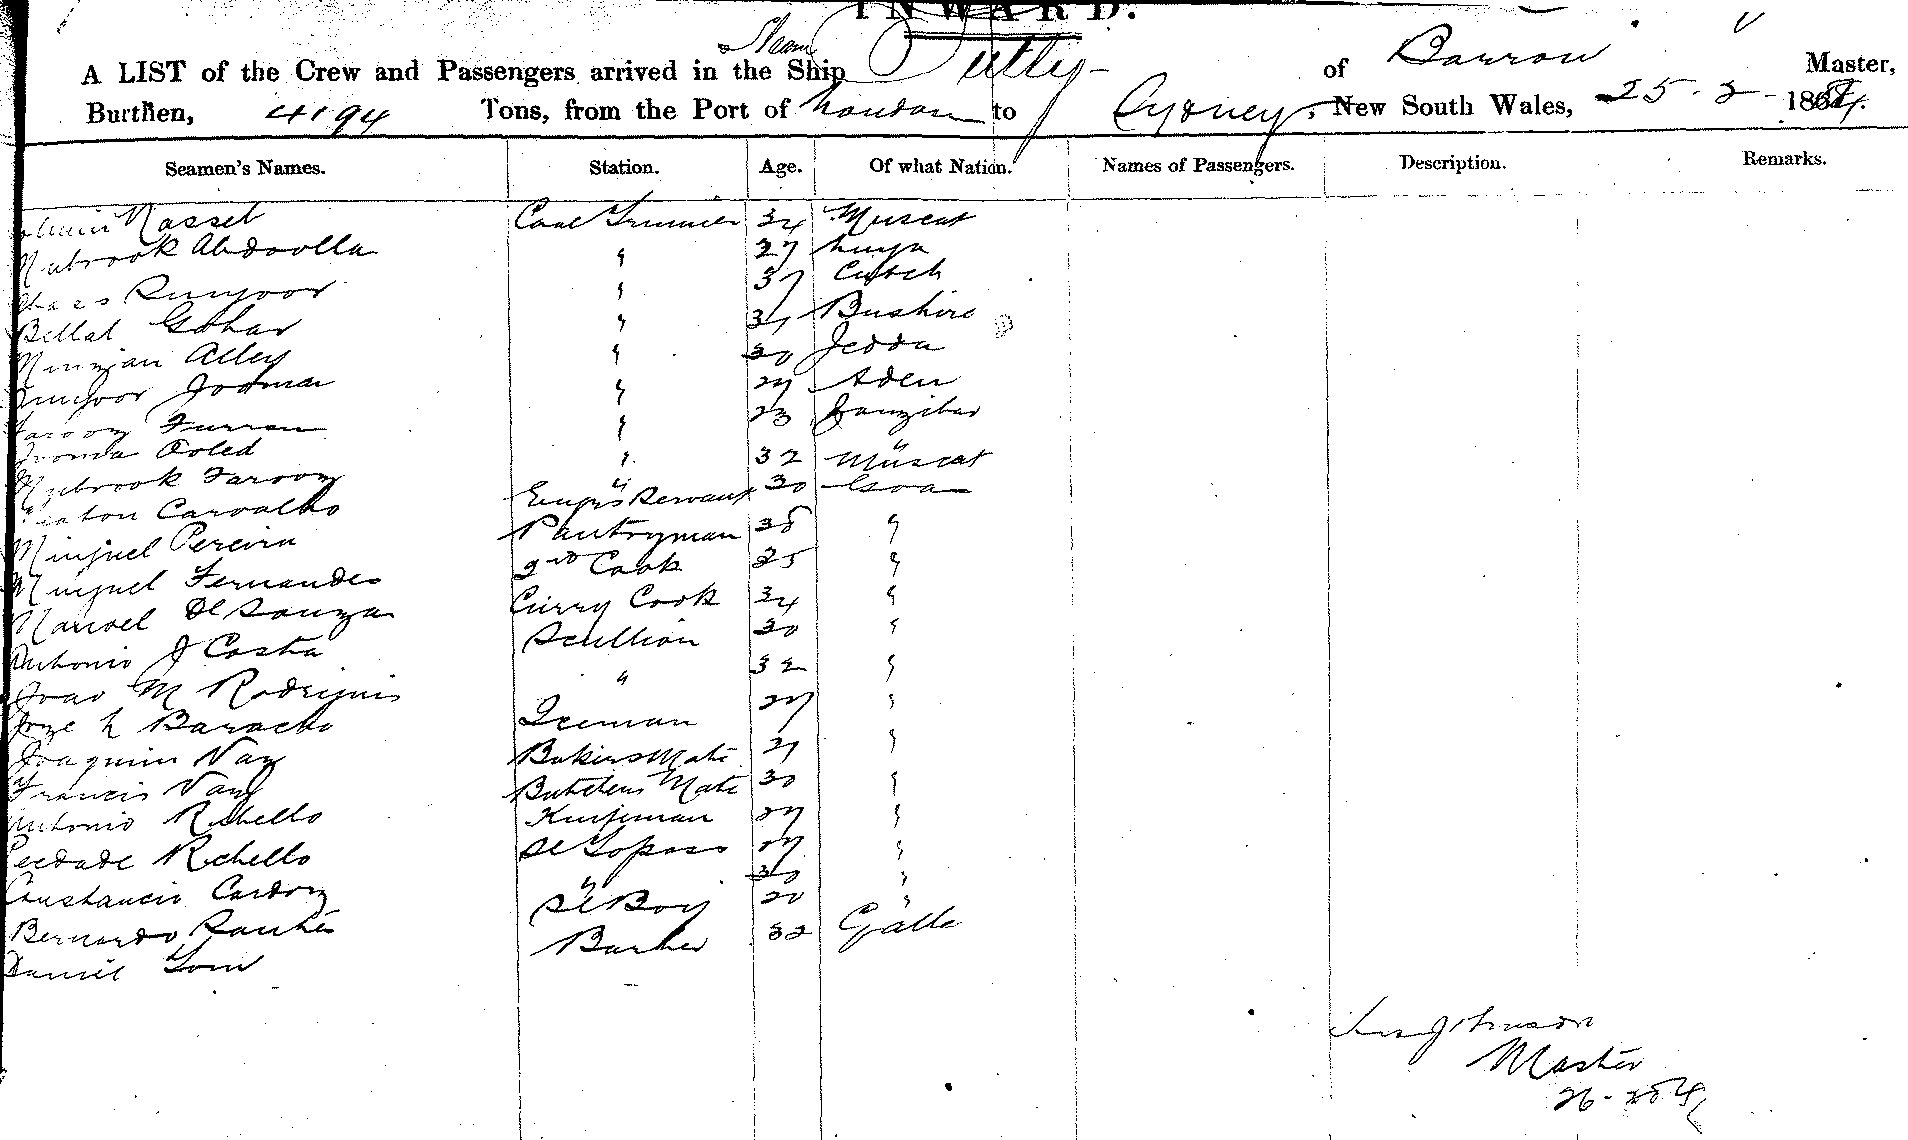 INWARD.
A LIST of the Crew and Passengers arrived in the Ship Steam of Barrow Master,
Burthen, 4194 Tons, from the Port of London to Sydney, New South Wales, 25.2.1884.
Seamen's Names. Station. Age. Of what Nation. Names of Passengers. Description. Remarks.
Nasset Coal Trimmer 34 Muscat
Mubrook Abdoolla " 27
" 37 Cutch
Bellal Gohar " Bushire
Alley " 30 Jedda
Jooma " 27 Aden
Furran " 23 Zanzibar
Jooma Ooled " "
Mubrook Farooz " 32 Muscat
Carvalho Engrs Servant 30 Goa
Minguel Pereira Pantryman 38 "
Minguel Fernandes 2nd Cook 25 "
Manoel De Souza Curry Cook 34 "
Antonio J Costa Scullion 30 "
Joao M Rodriguis " 32 "
Joze L Baracho Iceman 27 "
Joaquim Vaz Bakers Mate 21 "
Francis Vaz Butchers Mate 30 "
Antonio Rebello 27 "
Peedade Rebello Sl Topass 27 "
Constancio Cardoz " 30 "
Bernardo Santes Sl Boy 20 "
Daniel Barber 32 Galle
Johnson
Master